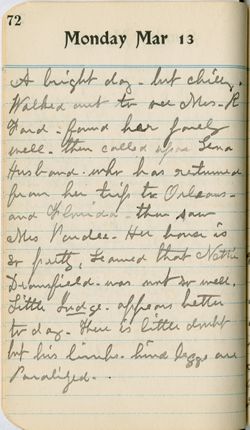 72
Monday Mar 13
A bright day - but chilly.
Walked out to see Mrs. R
Ford - found her fairly
well - then called upon Lena
Husband - who has returned
from her trip to Orleans -
and Florida - then saw
Mrs Pardee - Her house is
so pretty, Learned that Nettie
was not so well.
Little Judge - appears better
to day - There is little doubt
but his limbs - hind leggs are
Paralized -